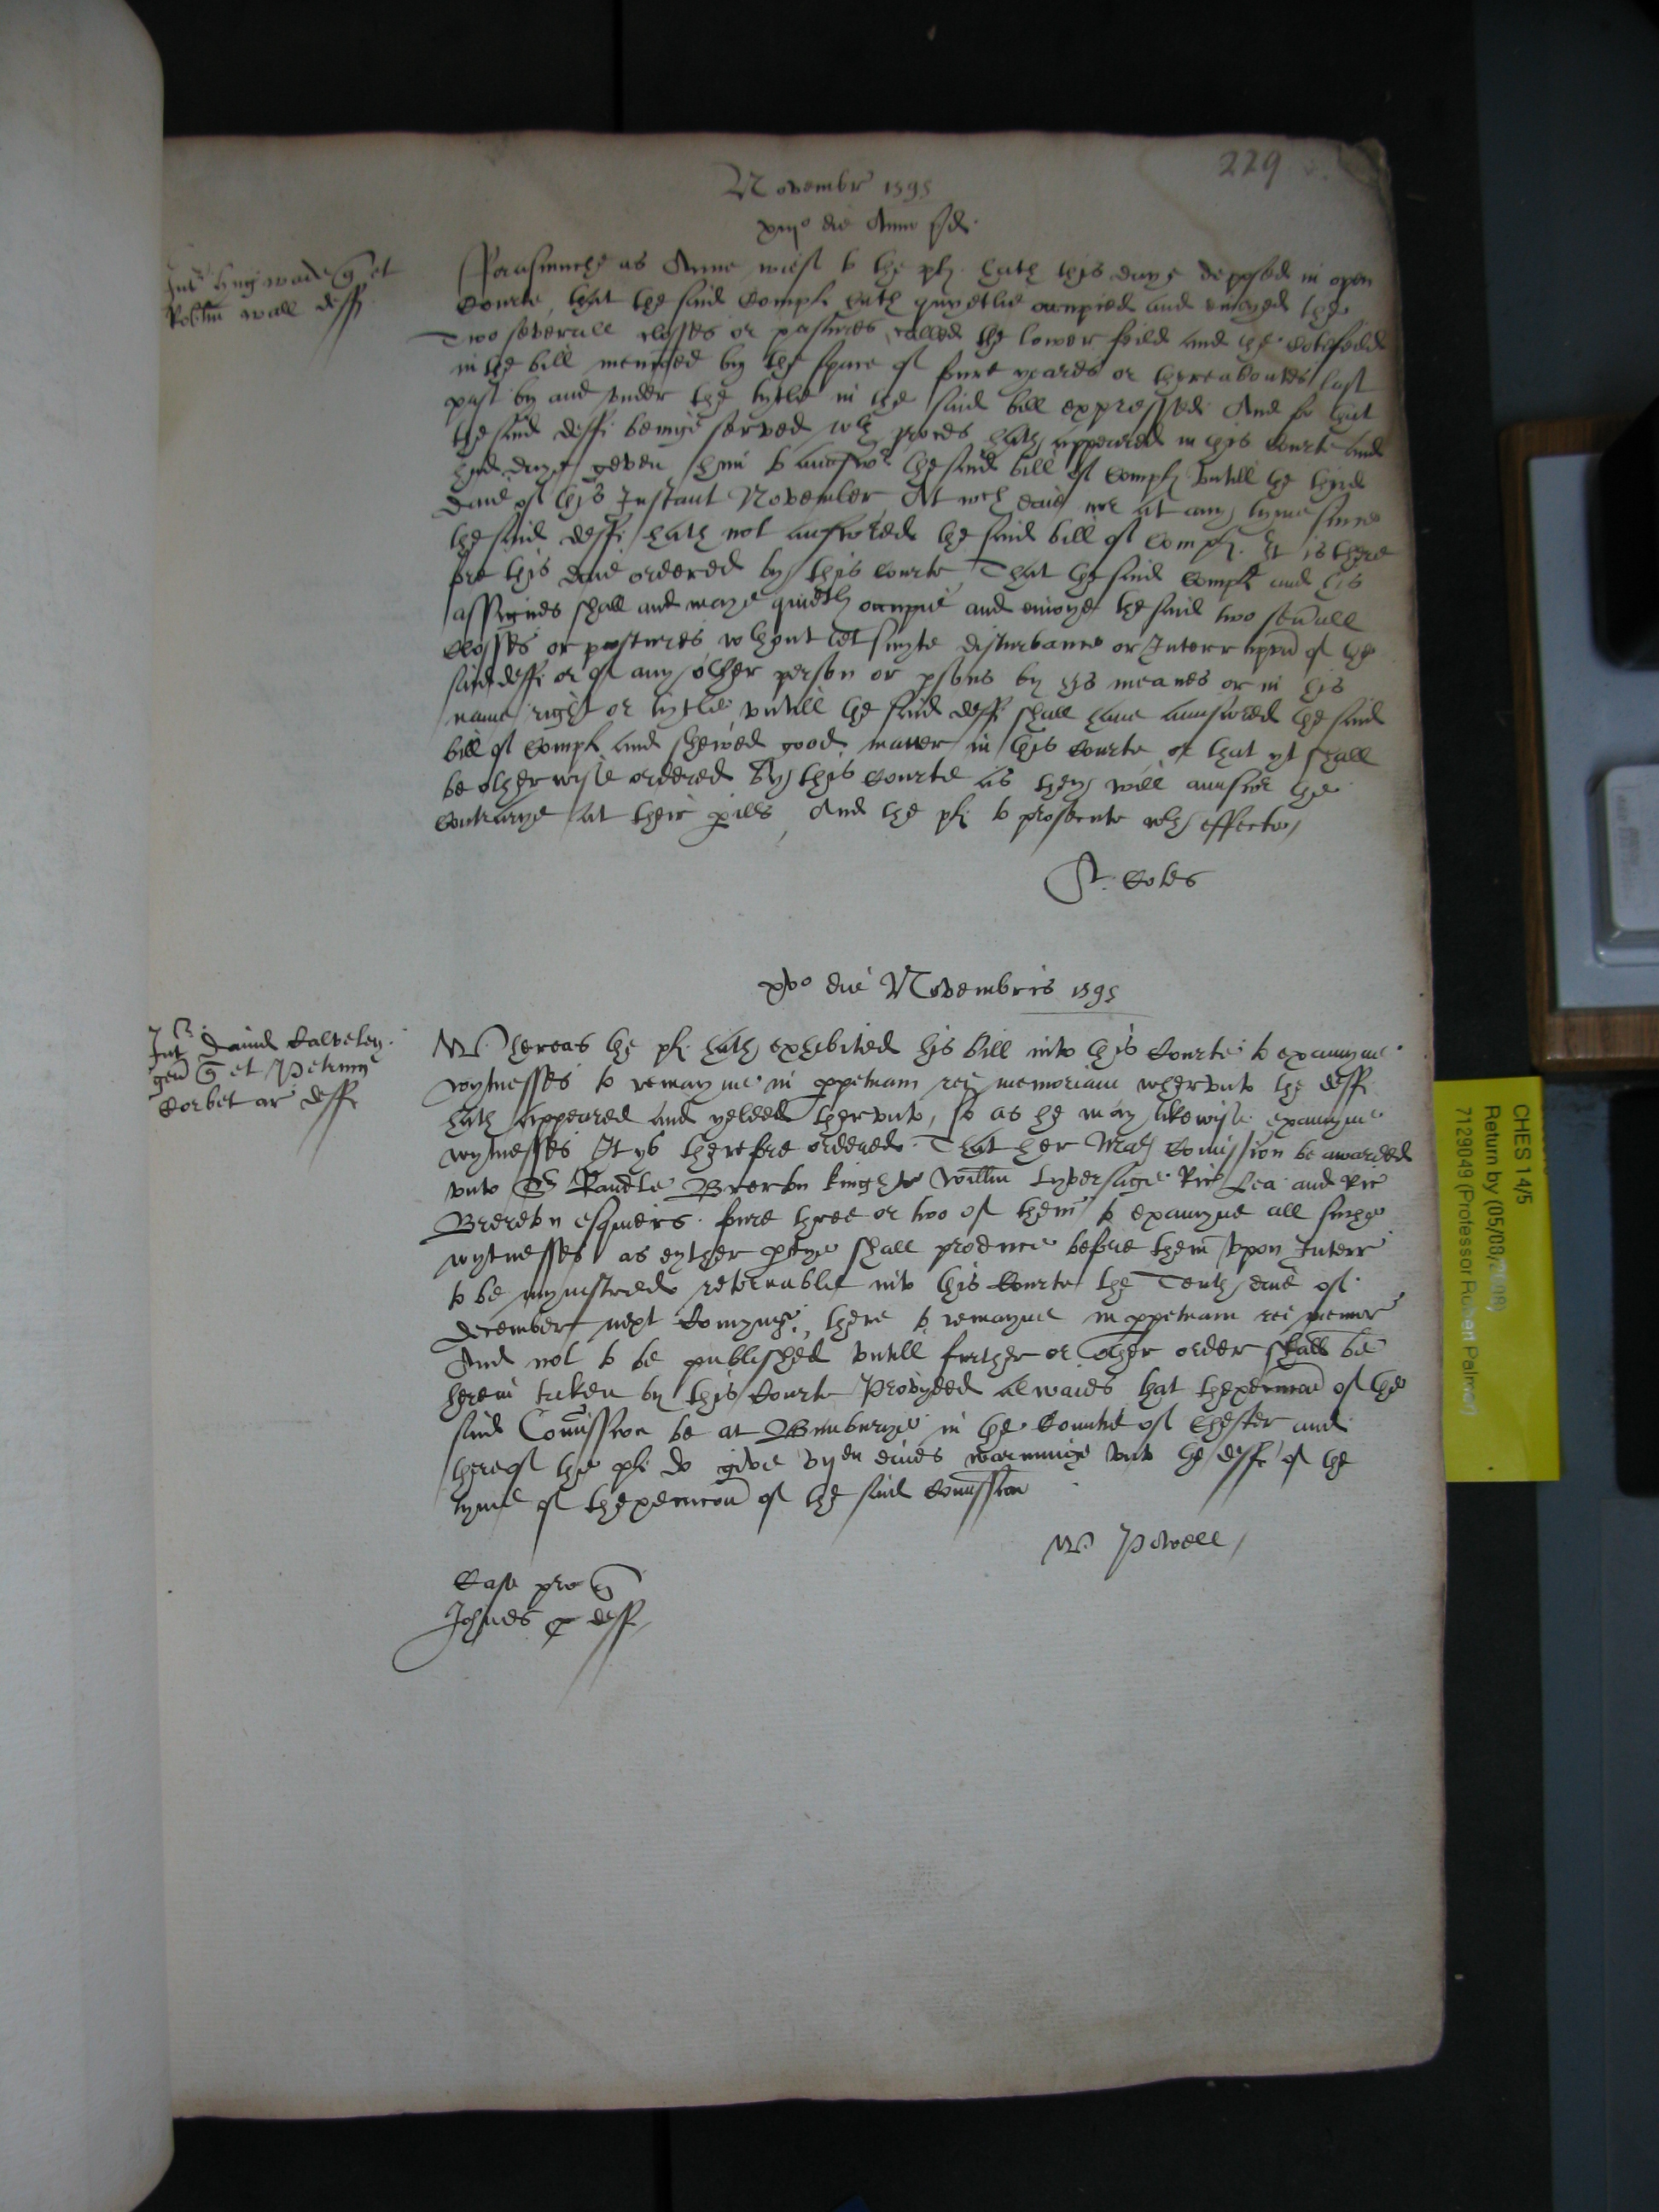 229
Novembr 1595
xiijo die Anno pd
Int' hugwade q et
Robtm wall deff
Fforasmuche as Anne wief to the plt hath this daye deposed in open
Courte, that the said Complt hath quyetlie occupied and enioyed the
Two severall closses or pastures called the lower feild and the
in the bill menconed by the space of foure yeares or thereaboutes last
past by and vnder the tytle in the said bill expressed And for that
the said deft beinge served wth proces hath appeared in this Courte and
had daye geven him to aunswer the said bill of Complt vntill the third
daie of this Instant November At wch daie nor at any tyme since
the said deft hath not answered the said bill of Complt. It is there
fore this daie ordered by this Courte That the said Complt and his
assignes shall and maye quietly occupie and enioye the said two seuall
Closses or pastures wthout let suyte disturbance or Interrupcon of the
said deft or of any other person or psons by his meanes or in his
name right or tytle vntill the said deft shall haue aunswered the said
bill of Complt and shewed good matter in this Courte or that yt shall
be otherwise ordered By this Courte as they will aunswer the
Contrarye at their pills, And the plt to prosecute wth effecte
Coles
xvo die Novembris 1595
Int' David Calveley
gen q et Petrum
Corbet ar deff
Whereas the plt hath exhibited his bill into this Courte to examyne
wytnesses to remayne in ppetuam rei memoriam wherevnto the deft
hath appeared and yelded thervnto, so as he may likewise examyne
wytnesses It ys therefore ordered That her Mats Comission be awarded
vnto Sr Randle Brereton knight Willm Lyversage Ric Lea and Ric
Brereton esquiers foure three or two of them to examyne all suche
wytnesses as eyther ptye shall produce before them Vpon Interr
to be mynistred retornable into this Courte the Tenth daie of
December next Comynge, there to remayne in ppetuam rei memor
And not to be published vntill further or other order shall be
herein taken by this Courte Provyded alwaies that thexecucon of the
said Comission be at Bunburye in the Countie of Chester and
thereof the plt do give vjen daies warninge vnto the deft of the
tyme of thexecucon of the said Comission
W. Powell
Case pro q
Johnes p deff
CHES 14/5
Return by (05/08/2008)
7129049 (Professor Robert Palmer)